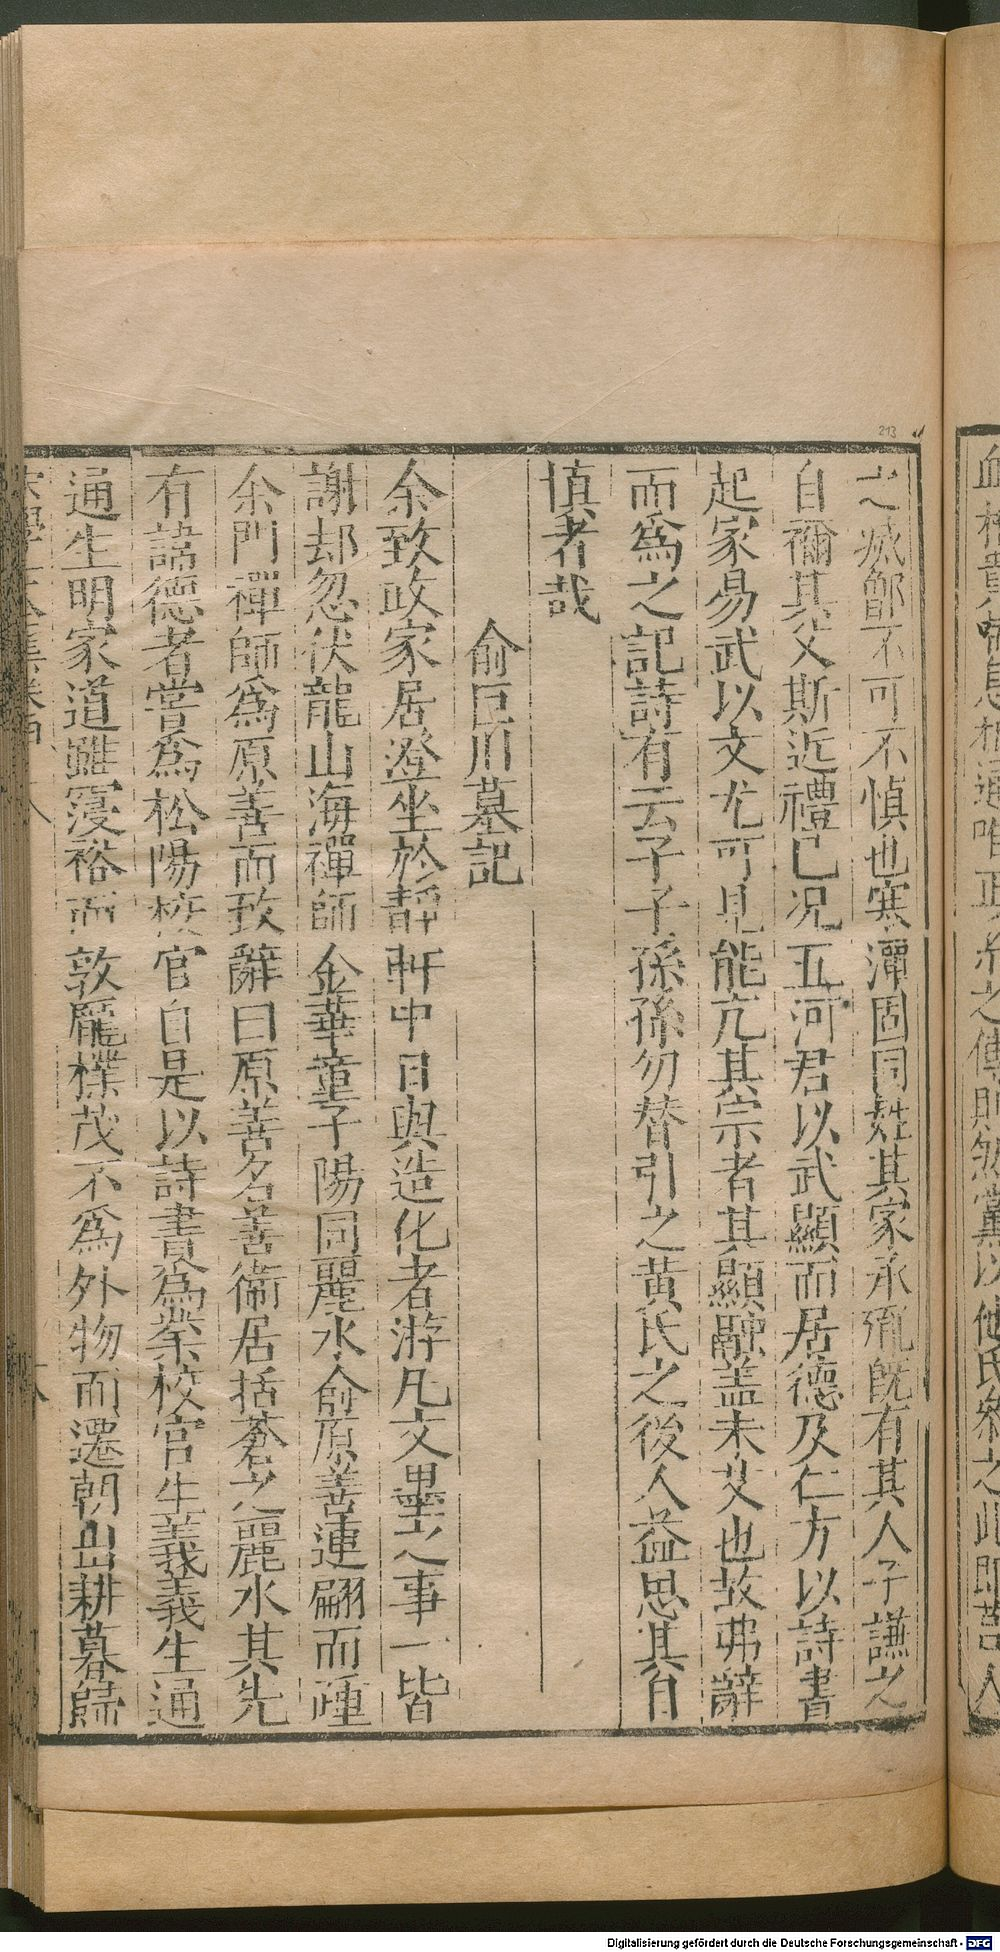 之滅鄫不可不慎也寒潭固同姓其家承胤既有其人子謙之
自禰其父斯近禮已况五河君以武顯而居德及仁方以詩書
起家易武以文尤可見能亢其宗者其顯融盖未艾也故弗辭
而爲之記詩有云子子孫孫勿替引之黄氏之後人益思其自
慎者哉
俞巨川墓記
余致政家居澄坐於静軒中日與造化者游凡文墨之事一皆
謝却忽伏龍山海禪師金華童子陽同麗水俞原善連翩而踵
余門禪師爲原善而致辭曰原善名善衛居括蒼之麗水其先
有諱德者嘗爲松陽校官自是以詩書爲業校官生義義生通
通生明家道雖寖裕而敦龐樸茂不爲外物而遷朝出耕暮歸
213
Digitalisierung gefördert durch die Deutsche Forschungsgemeinschaft - DFG